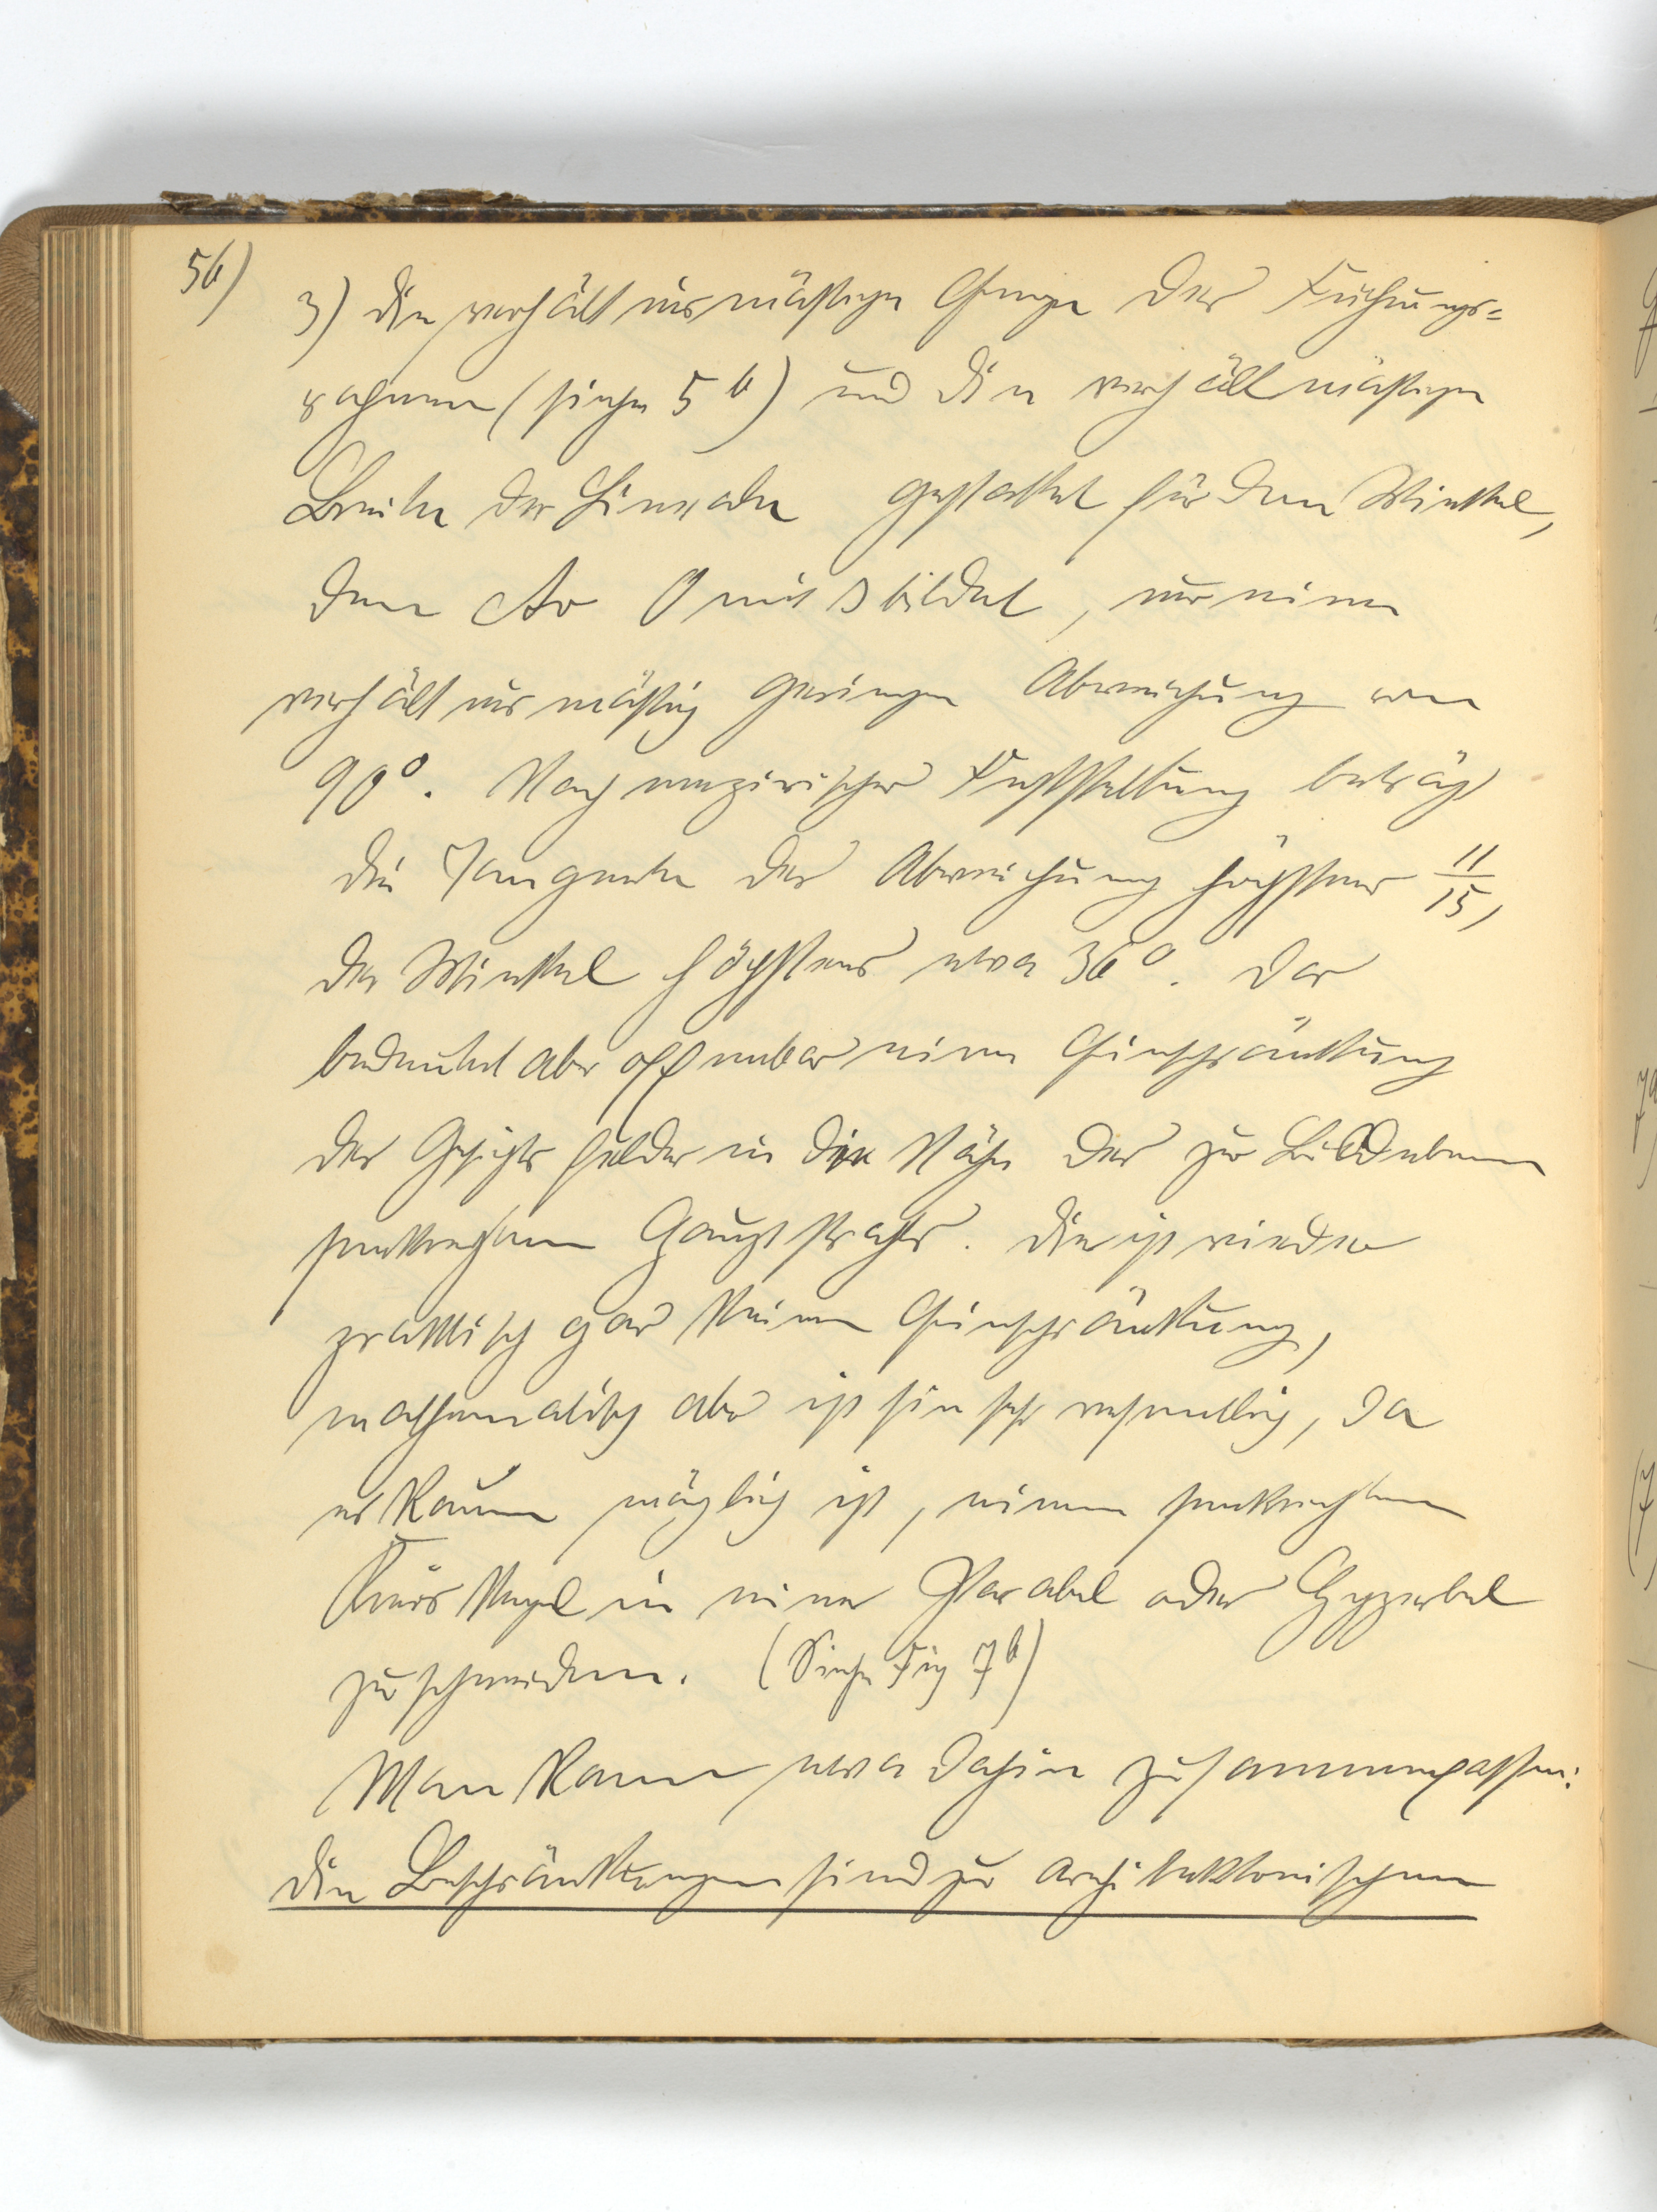 56)
3) Die verhältnismäßige Enge des Führungs=
rahmen (siehe 5b) und die verhältmäßige
Breite der Lineale gestattet für den Winkel,
den Ao O mit s bildet, nur eine
verhältnismäßig geringe Abweichung von
90°. Nach empirischer Feststellung beträgt
die Tangente der Abweichung höchstens 11/15,
der Winkel höchstens etwa 36°. Das
bedeutet aber offenbar eine Einschränkung
des Gesichtsfeldes in die Nähe des zur Bildebene
senkrechten Hauptstrahls. Dies ist wieder
praktisch gar keine Einschränkung,
mathematisch aber ist sie sehr wesentlich, da
es kaum möglich ist, einen senkrechten
Kreiskegel in einer Parabel oder Hyperbel
zu schneiden. (Siehe Fig 7b)
Man kann etwa dahin zusammenfassen:
Die Beschränkungen sind zur architektonischen